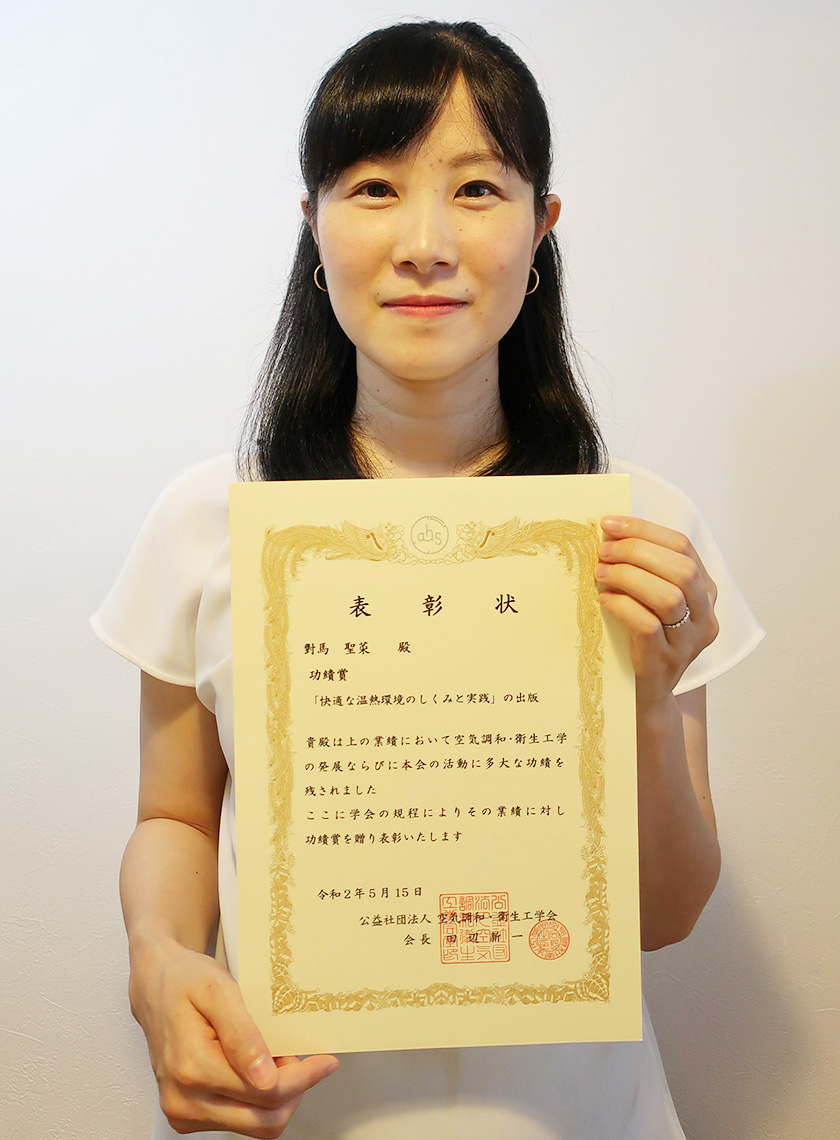 ahs
表彰状
對馬 聖菜 殿
功績賞
「快適な温熱環境のしくみと実践」の出版
貴殿は上の業績において空気調和・衛生工学
の発展ならびに本会の活動に多大な功績を
残されました
ここに学会の規程によりその業績に対し
功績賞を贈り表彰いたします
令和2年5月15日
公益社団法人 空気調和・衛生工学会
会長 田辺新一